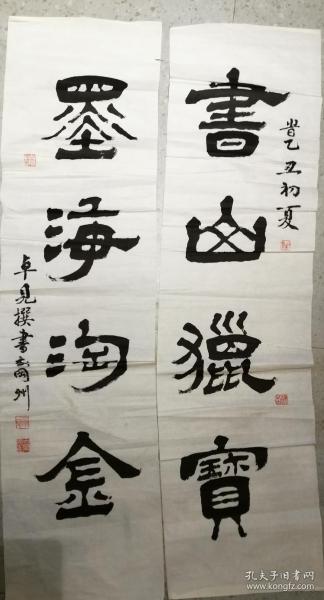 乙丑初夏
書山獵寶
墨海淘金
卓見撰書
州
孔夫子旧书网